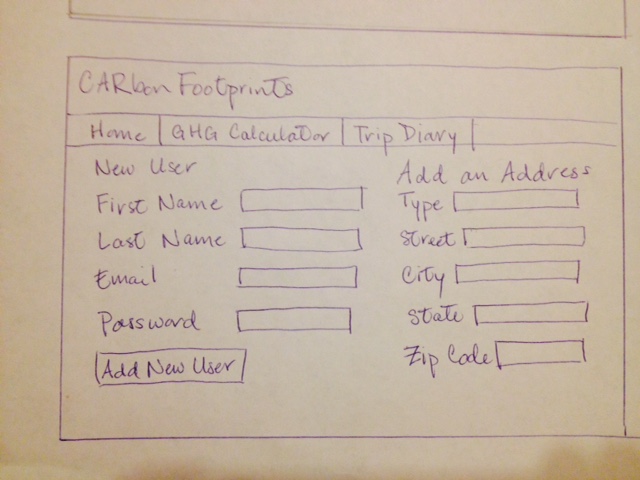 CARbon Footprints
Home GHG Calculator Trip Diary
New User
First Name
Last Name
Email
Password
Add New User
Add an Address
Type
Street
City
State
Zip Code